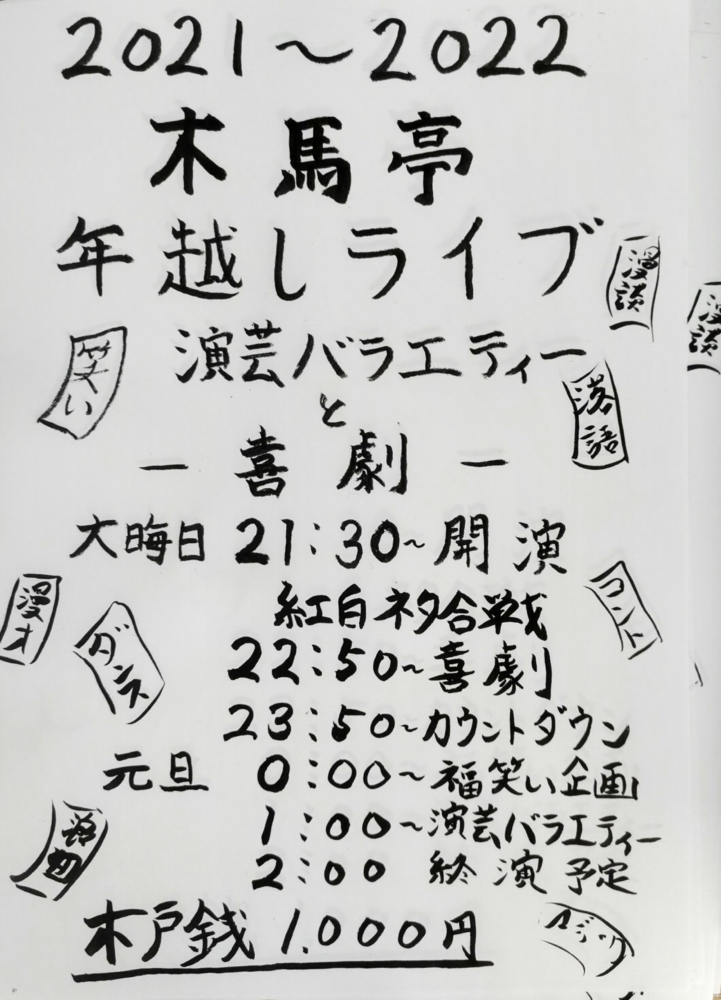 2021〜2022
木馬亭
年越しライブ
漫談
漫談
笑い
演芸バラエティー
と
落語
－喜劇－
大晦日 21:30~開演
紅白ネタ合戦
漫才
ダンス
コント
22:50~喜劇
23:50~カウントダウン
元旦 0:00~福笑い企画
1:00~演芸バラエティー
2:00 終演予定
木戸銭 1.000円
マジック